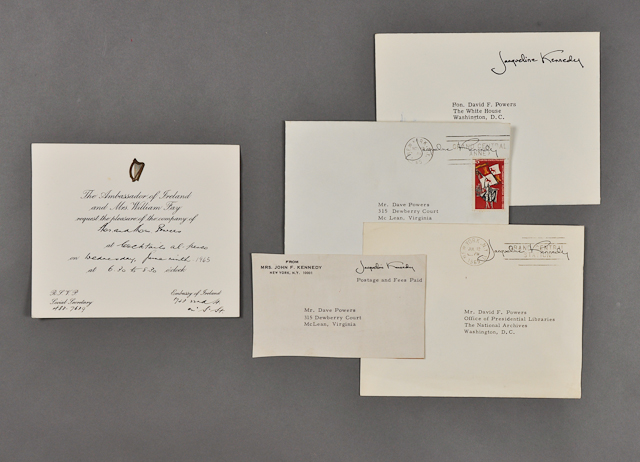 The Ambassador of Ireland
and Mrs. William Fay
request the pleasure of the company of
at Cocktails
on Wednesday, June 1963
at 6.30 to 8.30 o'clock
R.S.V.P.
Social Secretary
Embassy of Ireland
Jacqueline Kennedy
Hon. David F. Powers
The White House
Washington, D. C.
Jacqueline Kennedy
Mr. Dave Powers
315 Dewberry Court
Mc Lean, Virginia
FROM
MRS. JOHN F. KENNEDY
NEW YORK, N.Y. 10001
Jacqueline Kennedy
Postage and Fees Paid
Mr. Dave Powers
315 Dewberry Court
McLean, Virginia
GRAND CENTRAL
Jacqueline Kennedy
Mr. David F. Powers
Office of Presidential Libraries
The National Archives
Washington, D. C.